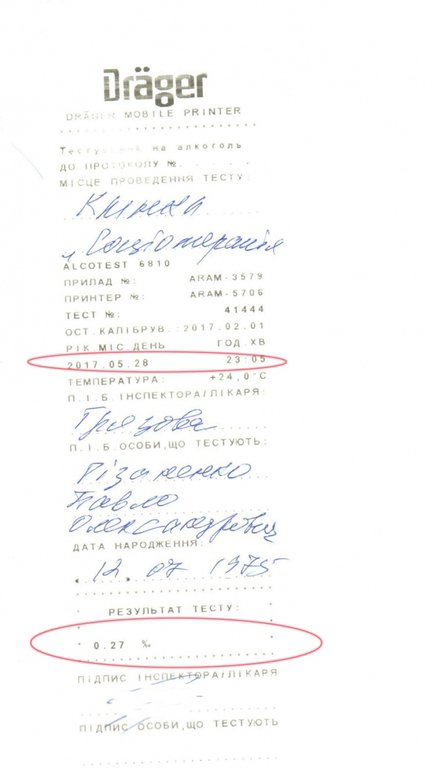 Dräger
DRÄGER MOBILE PRINTER
Тестування на алкоголь
ДО ПРОТОКОЛУ №.
МІСЦЕ ПРОВЕДЕННЯ ТЕСТУ:
Клініка
"Соціотерапія
ALCOTEST 6810
ПРИЛАД №: ARAM-3579
ПРИНТЕР №: ARAM-5706
ТЕСТ №: 41444
ОСТ.КАЛІБРУВ.:2017.02.01
РІК.МІС.ДЕНЬ ГОД.ХВ
2017.05.28 23:05
ТЕМПЕРАТУРА: +24,0°C
П.І.Б.ІНСПЕКТОРА/ЛІКАРЯ:
Грязова
П.І.Б.ОСОБИ,ЩО ТЕСТУЮТЬ:
Різаненко
Павло
Олександрович
ДАТА НАРОДЖЕННЯ:
"12" 07 1975
РЕЗУЛЬТАТ ТЕСТУ:
0.27 ‰
ПІДПИС ІНСПЕКТОРА/ЛІКАРЯ
ПІДПИС ОСОБИ,ЩО ТЕСТУЮТЬ